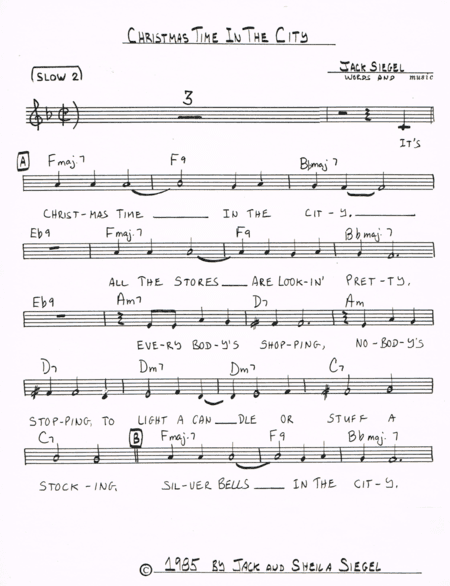 CHRISTMAS TIME IN THE CITY
(SLOW 2)
JACK SIEGEL
WORDS AND MUSIC
3
IT'S
A
Fmaj.7 F9 Bbmaj.7
CHRIST-MAS TIME ____ IN THE CIT-Y. ____
Eb9 Fmaj.7 F9 Bbmaj.7
ALL THE STORES ___ ARE LOOK-IN' PRET-TY.
Eb9 Am7 D7 Am
EVE-RY BOD-Y'S SHOP-PING, NO-BOD-Y'S
D7 Dm7 Dm7 C7
STOP-PING TO LIGHT A CAN ___DLE OR STUFF A
C7 B Fmaj.7 F9 Bbmaj.7
STOCK-ING. SIL-VER BELLS ___ IN THE CIT-Y.
© 1985 BY JACK AND SHEILA SIEGEL